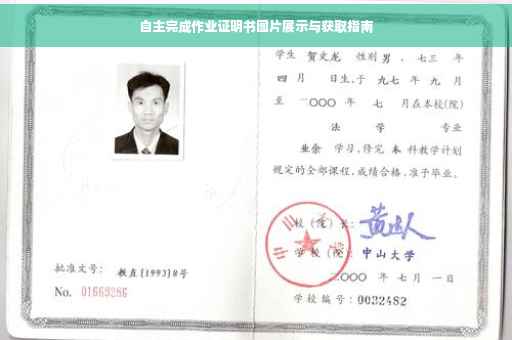 自主完成作业证明书图片展示与获取指南
学生 贺文龙 性别 男 、七三 年
四 月 日生,于 九七 年 九 月
至 二〇〇〇 年 七 月在本校(院)
法 学 专业
业余 学习,修完 本 科教学计划
规定的全部课程,成绩合格,准予毕业。
校(院)长:
学 校(院): 中山大学
二〇〇〇 年 七 月 一 日
学校编号: 0032482
批准文号: 教直[1993]8号
No. 01669286